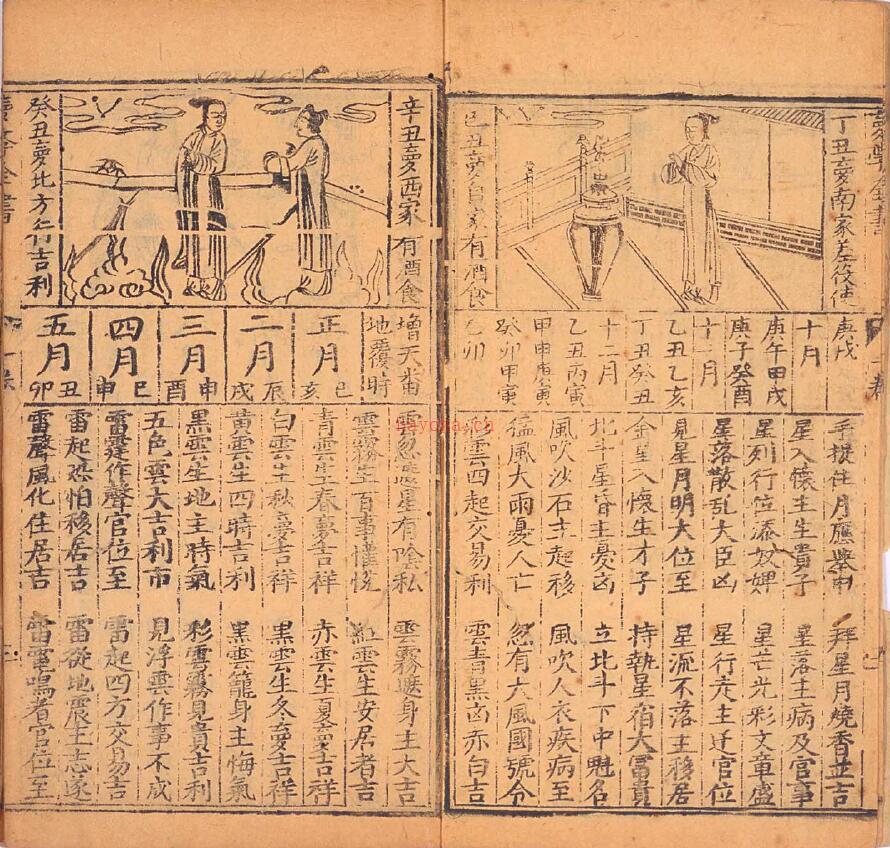 丁丑夢南家差役使
己丑夢家有酒食
庚戌
十月
庚午田戌
庚子癸酉
十一月
乙丑乙亥
丁丑癸丑
十二月
乙丑丙寅
甲申庚寅
癸卯甲寅
乙卯
手捉住月應舉中 拜星月燒香並吉
星入懷主生貴子 星落主病及官事
星列行位添奴婢 星芒光彩文章盛
星落散乱大臣凶 星行走主迁官位
見星月明大位至 星流不落主移居
金星入懷生才子 持執星宿大富貴
北斗星昏主憂凶 立北斗下中魁名
風吹沙石主起移 風吹人衣疾病至
猛風大雨憂人亡 忽有大風國號令
雲四起交易利 雲青黑凶赤白吉
辛丑夢西家有酒食
癸丑夢北方行吉利
增天番
地覆時
正月
巳 亥
二月
辰 戌
三月
申 酉
四月
巳 申
五月
丑 卯
雲忽惡星有陰私 雲霧遮身主大吉
雲霧生百事懽悅 紅雲生安居者吉
青雲生春夢吉祥 赤雲生夏夢吉祥
白雲生秋夢吉祥 黑雲生冬夢吉祥
黃雲生四時吉利 黑雲籠身主悔氣
黑雲生地主時氣 彩雲霧見貴吉利
五色雲大吉利市 見浮雲作事不成
雷霆作聲官位至 雷起四方交易吉
雷起恐怕移居吉 雷從地震主志遂
雷聲風化住居吉 雷電鳴者官位至